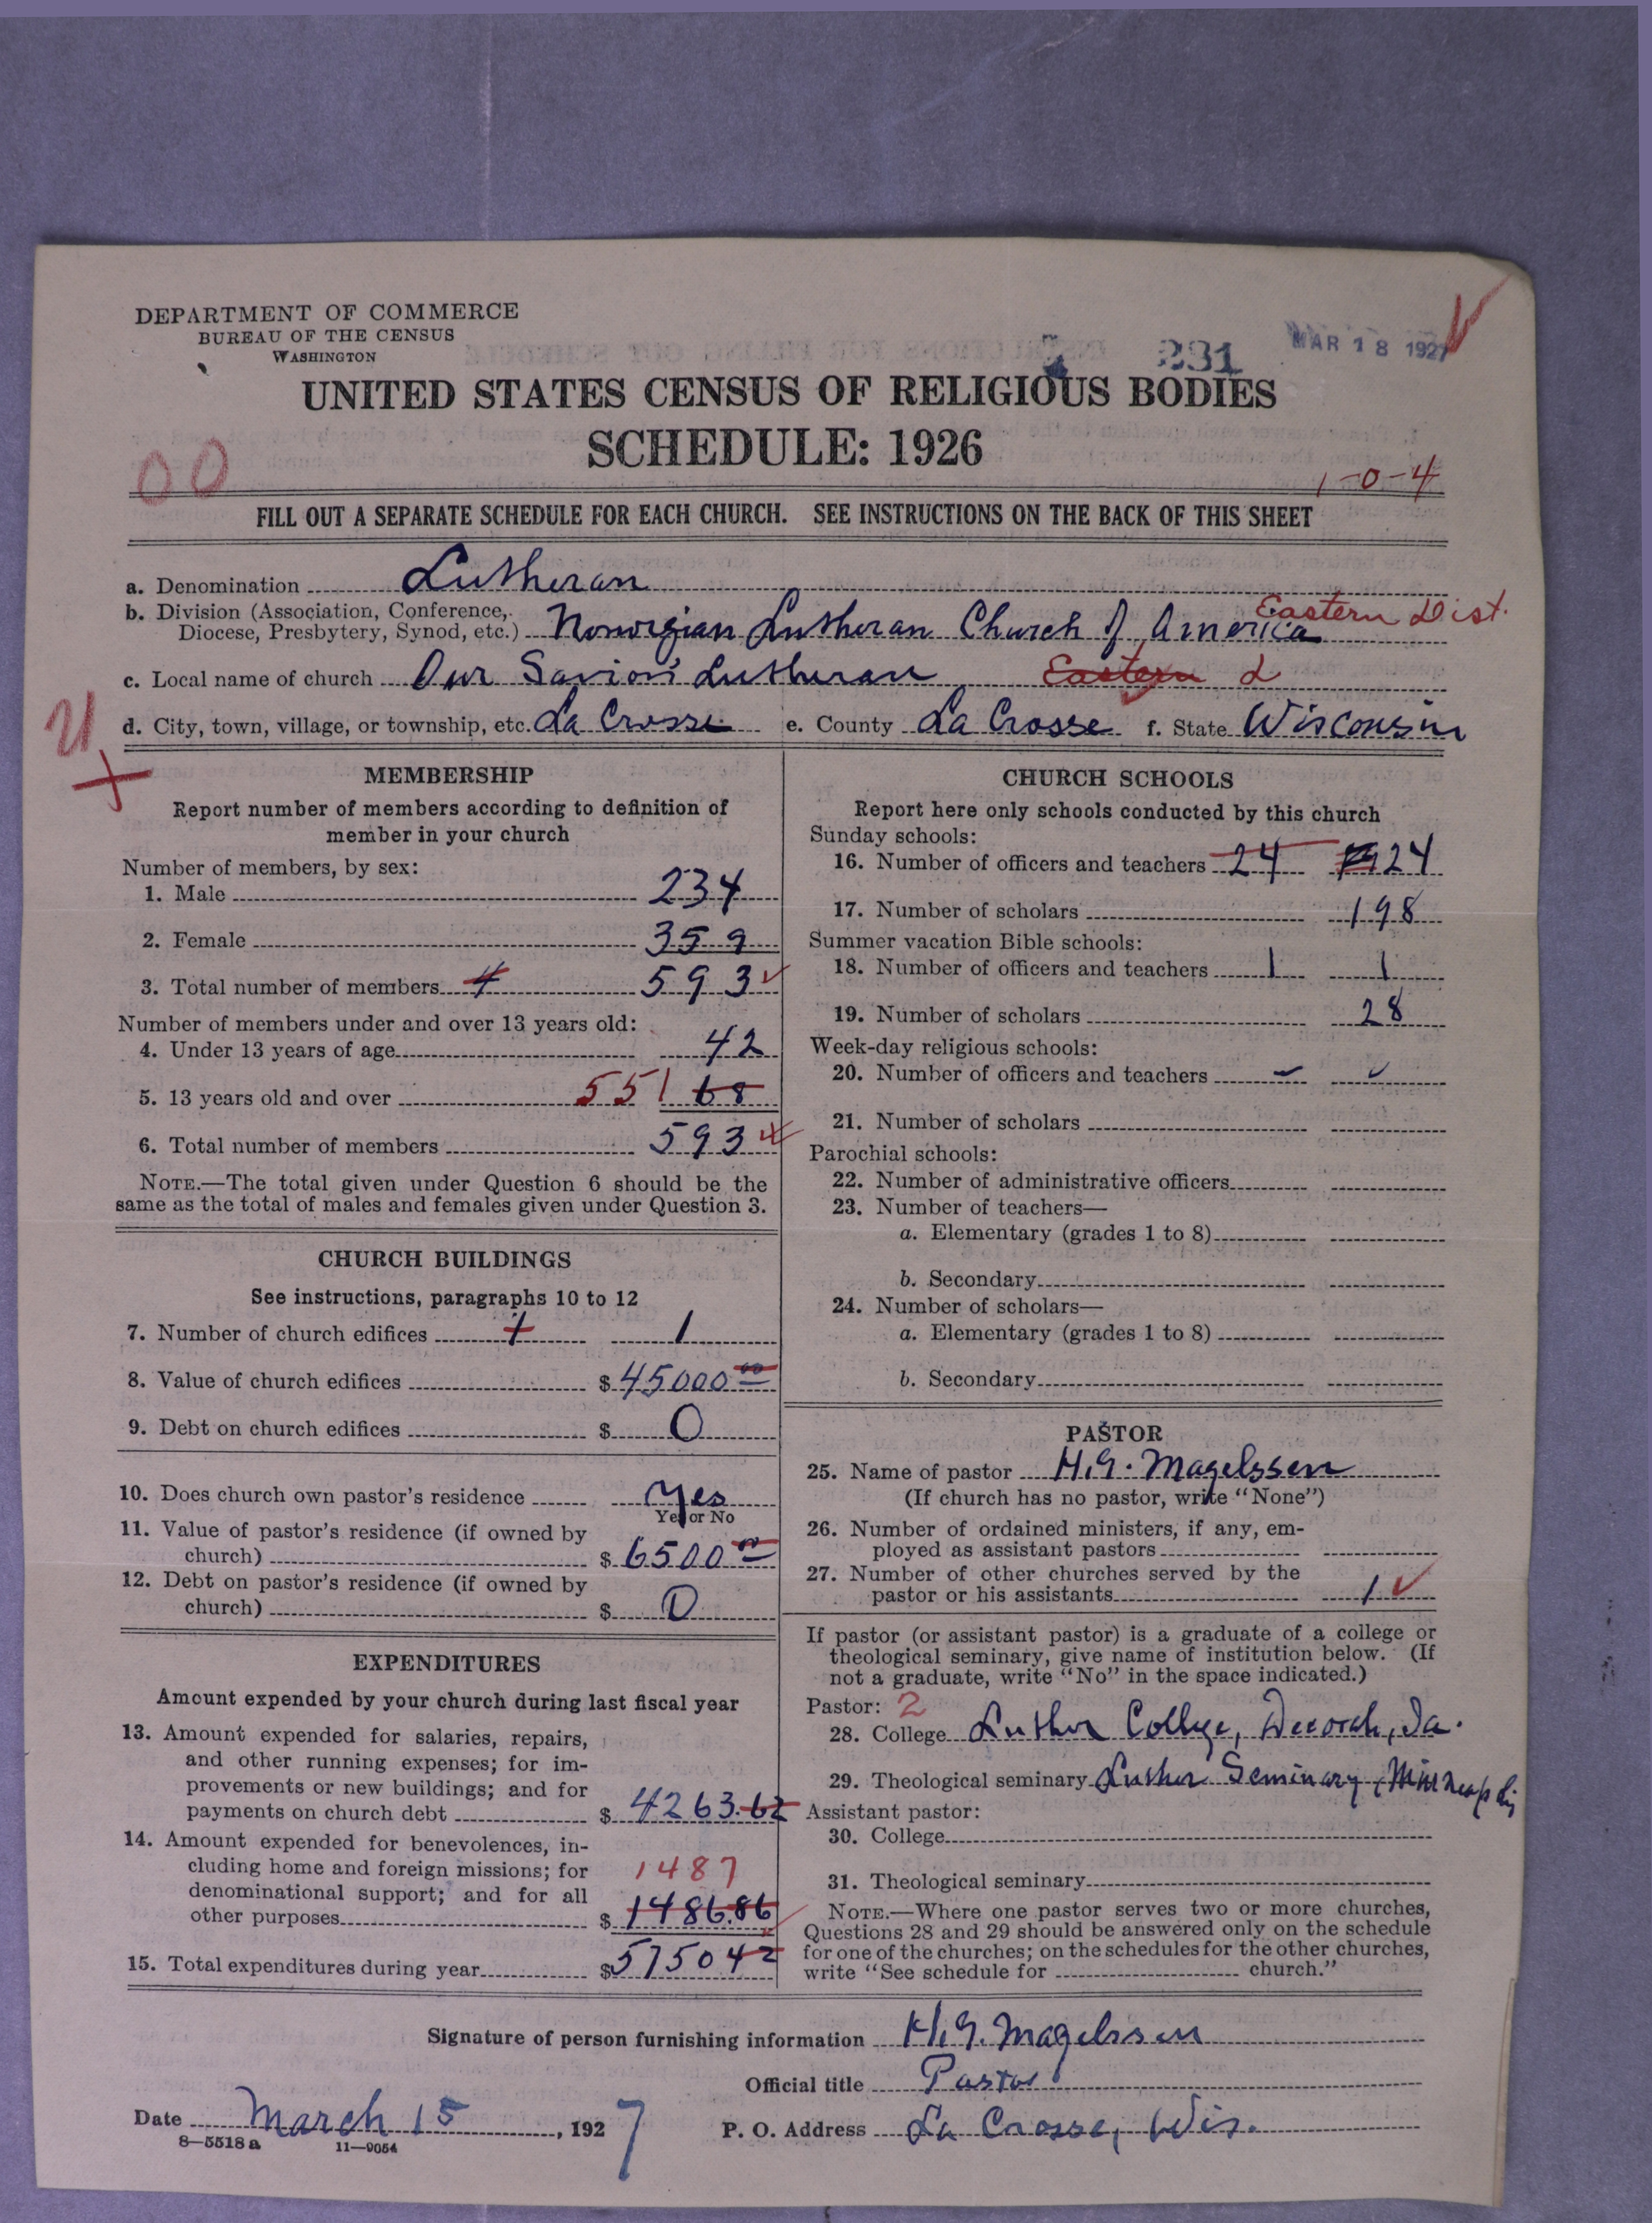 DEPARTMENT OF COMMERCE
BUREAU OF THE CENSUS
WASHINGTON
231
MAR 18 1927
UNITED STATES CENSUS OF RELIGIOUS BODIES
SCHEDULE: 1926
00
1-0-4
FILL OUT A SEPARATE SCHEDULE FOR EACH CHURCH. SEE INSTRUCTIONS ON THE BACK OF THIS SHEET
a. Denomination Lutheran
b. Division (Association, Conference, Diocese, Presbytery, Synod, etc.) Norwegian Lutheran Church of America Eastern Dist.
c. Local name of church Our Savior's Lutheran Eastern D
d. City, town, village, or township, etc. La Crosse e. County La Crosse f. State Wisconsin
MEMBERSHIP
Report number of members according to definition of
member in your church
Number of members, by sex:
1. Male 234
2. Female 359
3. Total number of members 4 593
Number of members under and over 13 years old:
4. Under 13 years of age 42
5. 13 years old and over 551 68
6. Total number of members 593
NOTE.—The total given under Question 6 should be the
same as the total of males and females given under Question 3.
CHURCH BUILDINGS
See instructions, paragraphs 10 to 12
7. Number of church edifices 1 1
8. Value of church edifices $ 45000 00
9. Debt on church edifices $ 0
10. Does church own pastor's residence Yes
Yes or No
11. Value of pastor's residence (if owned by
church) $ 6500 00
12. Debt on pastor's residence (if owned by
church) $ 0
EXPENDITURES
Amount expended by your church during last fiscal year
13. Amount expended for salaries, repairs,
and other running expenses; for im-
provements or new buildings; and for
payments on church debt $ 4263.62
14. Amount expended for benevolences, in-
cluding home and foreign missions; for 1487
denominational support; and for all
other purposes $ 1486.86
15. Total expenditures during year $ 5750 42
CHURCH SCHOOLS
Report here only schools conducted by this church
Sunday schools:
16. Number of officers and teachers 24 24
17. Number of scholars 198
Summer vacation Bible schools:
18. Number of officers and teachers 1 1
19. Number of scholars 28
Week-day religious schools:
20. Number of officers and teachers
21. Number of scholars
Parochial schools:
22. Number of administrative officers
23. Number of teachers—
a. Elementary (grades 1 to 8)
b. Secondary
24. Number of scholars—
a. Elementary (grades 1 to 8)
b. Secondary
PASTOR
25. Name of pastor H.G. Magelssen
(If church has no pastor, write "None")
26. Number of ordained ministers, if any, em-
ployed as assistant pastors
27. Number of other churches served by the
pastor or his assistants 1
If pastor (or assistant pastor) is a graduate of a college or
theological seminary, give name of institution below. (If
not a graduate, write "No" in the space indicated.)
Pastor: 2
28. College Luther College, Decorah, Ia.
29. Theological seminary Luther Seminary, Minneapolis
Assistant pastor:
30. College
31. Theological seminary
NOTE.—Where one pastor serves two or more churches,
Questions 28 and 29 should be answered only on the schedule
for one of the churches; on the schedules for the other churches,
write "See schedule for church."
Signature of person furnishing information H.G. Magelssen
Official title Pastor
Date March 15, 1927 P. O. Address La Crosse, Wis.
8—5518 a 11—9054